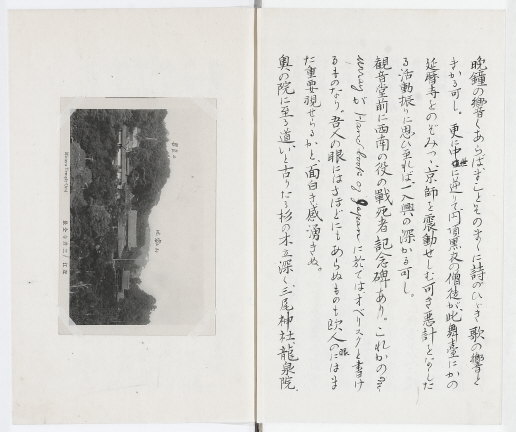 晩鐘の響くあらばまことそのまゝに詩のひゞき歌の響と
きかる可し。更に中世に逆りて円頂黒衣の僧徒が、此舞臺にかの
延暦寺とのぞみつゝ京師を震動せしむ可き悪計をなした
る活動振りに思ひ来れば一入興の深かる可し。
観音堂前に西南の役の戰死者記念碑あり。これかの
urray が Hand book of Japan に於てはオベリスクと書け
るものなり。吾人の眼にはさほどにもあらぬものも欧人の眼にはま
た重要視せらるかと、面白き感湧きぬ。
奥の院に至る道いと古りたる杉の木立深く三尾神社、龍泉院、
Miidera Temple Omi